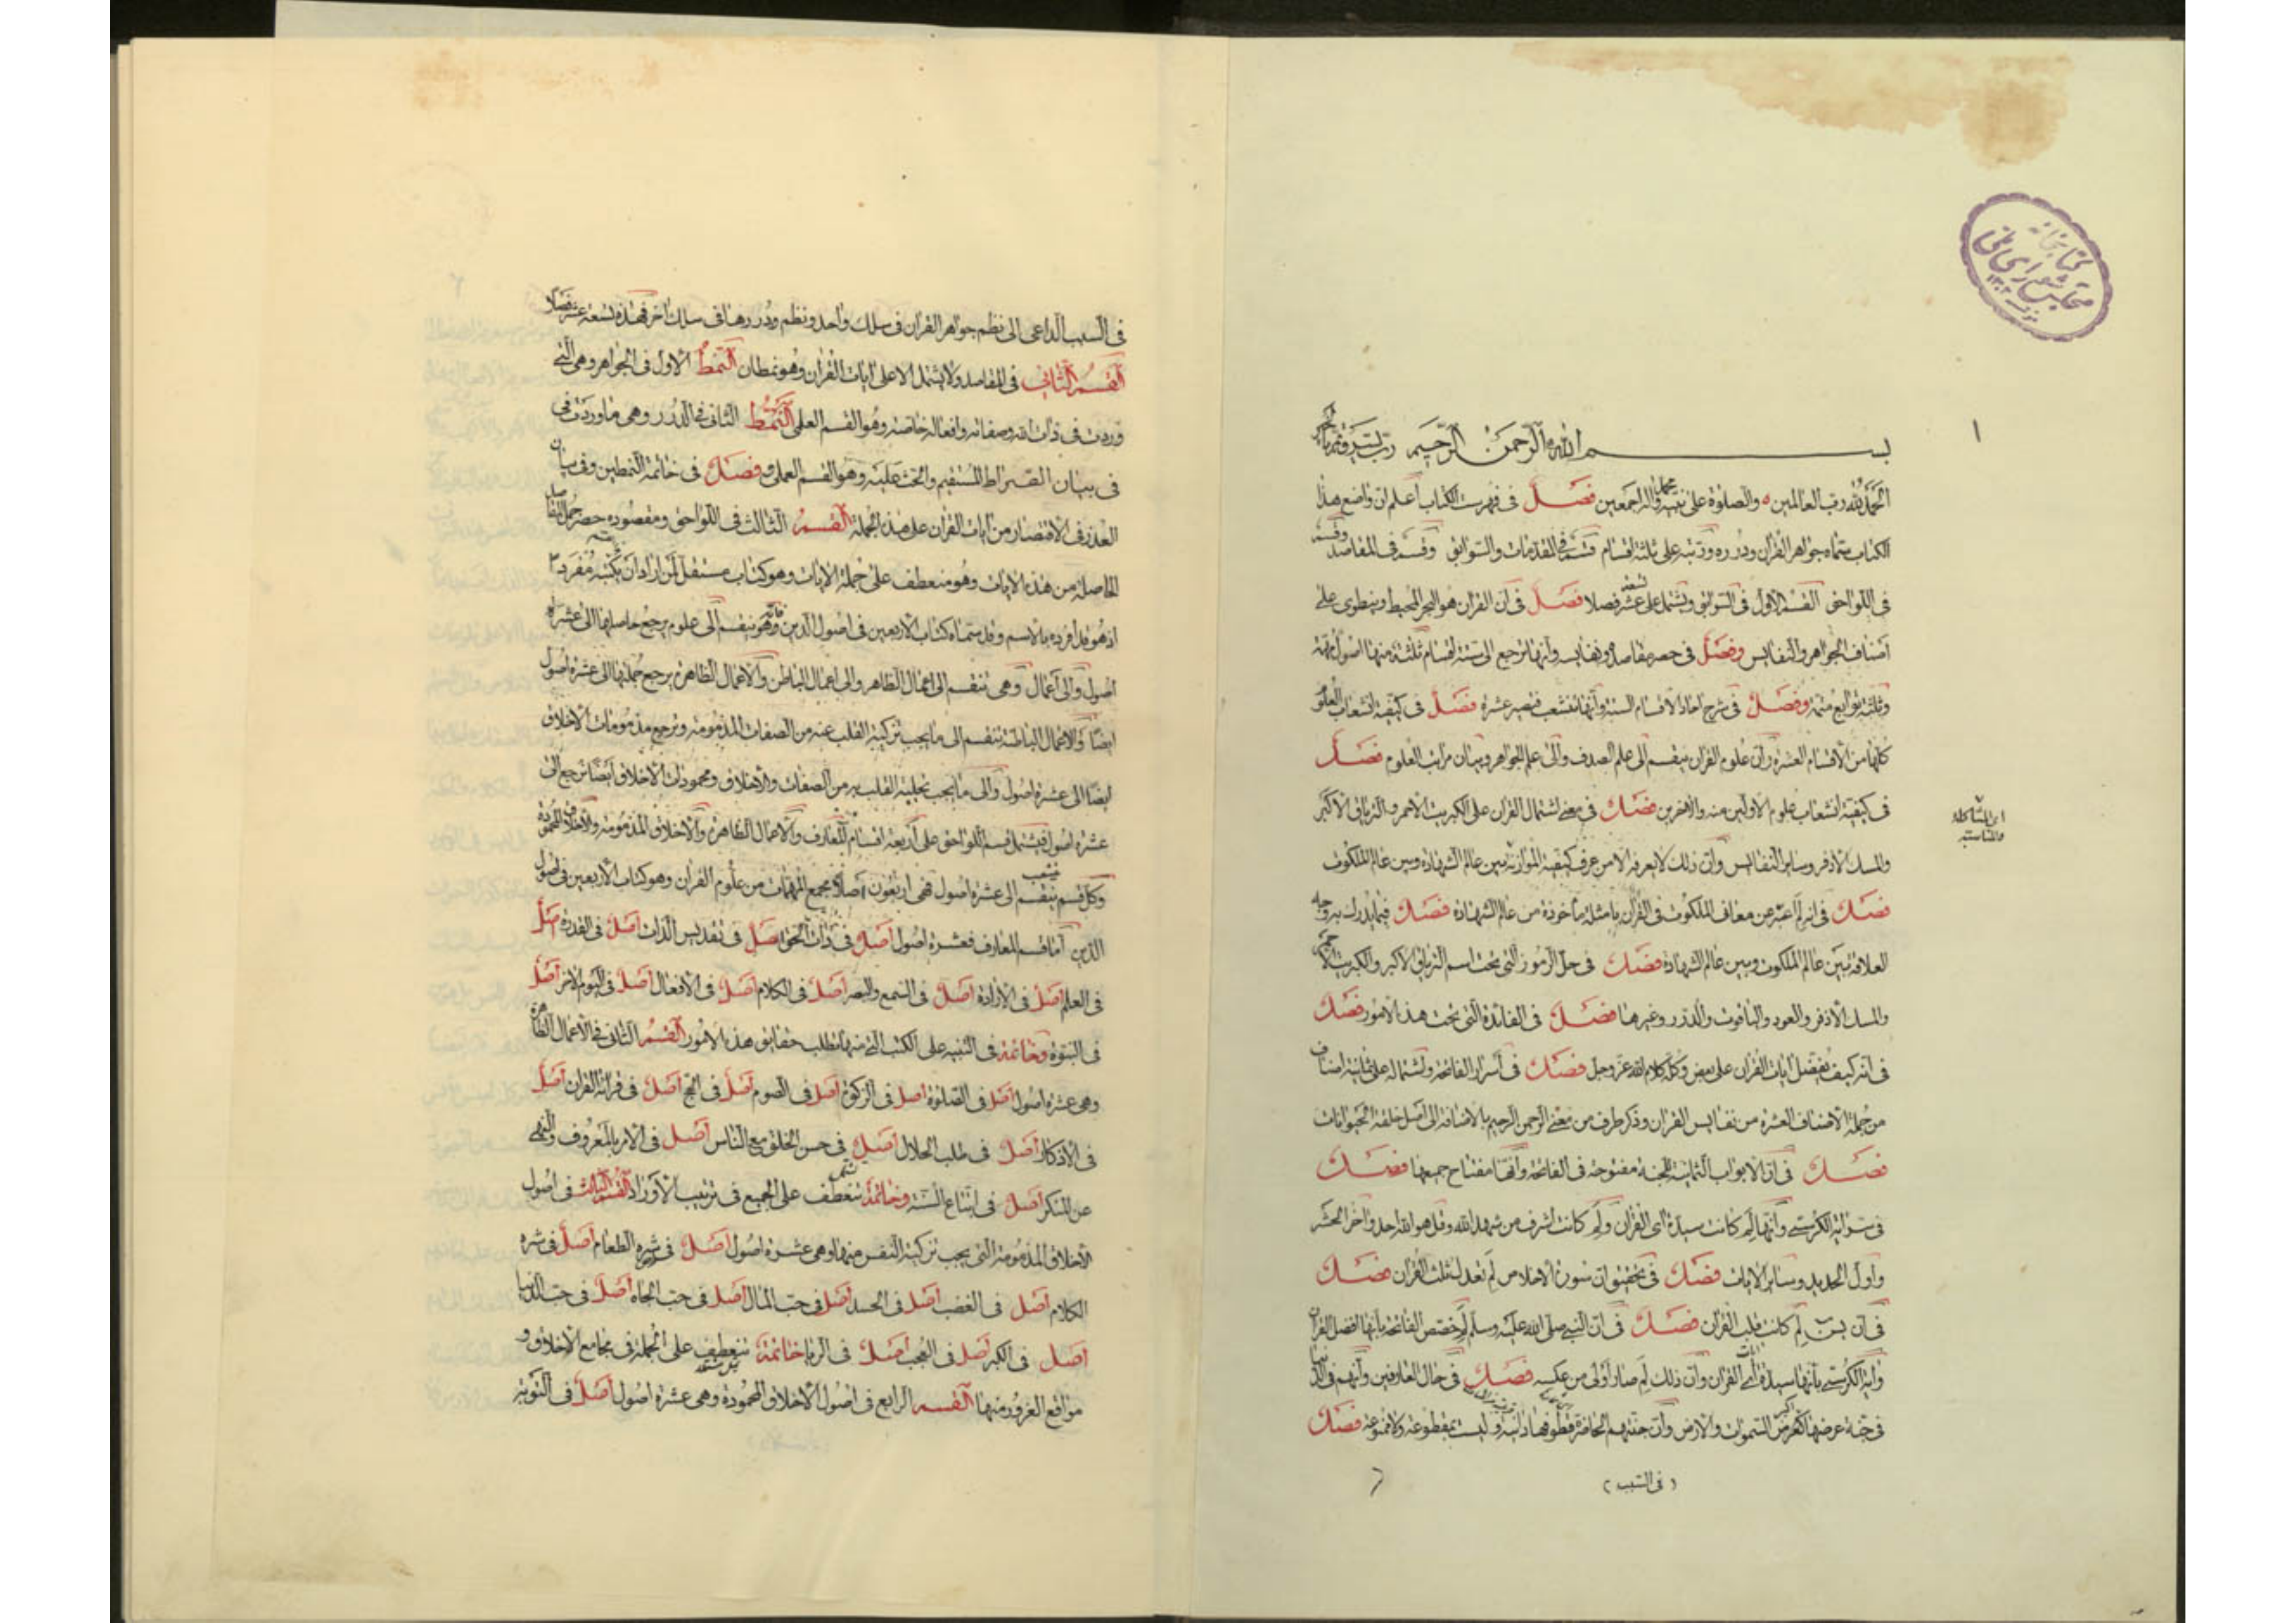 كتابخانه
مجلس شورای ملی
١
بسم الله الرحمن الرحيم رب يسر وتمم بالخير
الحمد لله رب العالمين والصلوة على نبيه محمد وآله اجمعين فصل في فهرست الكتاب اعلم ان واضع هذا
الكتاب سماه جواهر القرآن ودرره ورتبه على ثلثة اقسام قسم في المقدمات والسوابق وقسم في المقاصد وقسم
في اللواحق القسم الاول في السوابق ويشتمل على تسعة عشر فصلا فصل في ان القران هو البحر المحيط وينطوى على
اصناف الجواهر والنفايس وفصل في حصر مقاصده ونفايسه وانها ترجع الى ستة اقسام ثلثة منها اصول مهمة
وثلثة توابع متمة وفصل في شرح احاد الاقسام الستة وانها تتشعب فتصير عشرة فصل في كيفية انشعاب العلوم
كلها من الاقسام العشرة وان علوم القران ينقسم الى علم الصدف والى علم الجواهر وبيان مراتب العلوم فصل
في كيفية انشعاب علوم الاولين منه والاخرين فصل في معنى اشتمال القران على الكبريت الاحمر والترياق الاكبر
والمسك الاذفر وساير النفايس وان ذلك لا يعرفه الا من عرف كيفية الموازنة بين عالم الشهادة وبين عالم الملكوت
فصل في انه لم عبر عن معاني الملكوت في القران بامثلة ماخوذة من عالم الشهادة فصل فيما يدرك به وجه
العلاقة بين عالم الملكوت وبين عالم الشهادة فصل في حل الرموز التي تحت اسم الترياق الاكبر والكبريت الاحمر
والمسك الاذفر والعود والياقوت والدرر وغيرها فصل في الفائدة التي تحت هذا الامور فصل
في انه كيف يفضل ايات القران على بعض وكله كلام الله عز وجل فصل في اسرار الفاتحة واشتماله على ثمانية اصناف
من جملة الاصناف العشرة من نفايس القران وذكر طرف من معنى الرحمن الرحيم بالاضافة الى اصل خلقة الحيوانات
فصل في ان الابواب الثمانية للجنة مفتوحة في الفاتحة وانها مفتاح جميعها فصل
في اية الكرسي وانها لم كانت سيدة اى القران ولم كانت اشرف من شهد الله وقل هو الله احد واخر الحشر
واول الحديد وساير الايات فصل في تحقيق ان سورة الاخلاص لم تعدل ثلث القران فصل
في ان يس لم كانت قلب القران فصل في ان النبي صلى الله عليه وسلم لم خصص الفاتحة بانها افضل القران
واية الكرسي بانها سيدة اى القران وان ذلك لم صار اولى من عكسه فصل في حال العارفين وانهم في الدنيا
في جنة عرضها اكبر من السموات والارض وان جنتهم الحاضرة قطوفها دانية وليست بمقطوعة ولا ممنوعة فصل
(في السبب)
والمناسبة
في السبب الداعي الى نظم جواهر القران في سلك واحد ونظم درره في سلك اخر فهذه تسعة عشر فصلا
القسم الثاني في المقاصد ولا يشتمل الا على ايات القران وهو نمطان النمط الاول في الجواهر وهي التي
وردت في ذات الله وصفاته وافعاله خاصة وهو القسم العلمي النمط الثاني في الدرر وهي ما وردت في
في بيان الصراط المستقيم والحث عليه وهو القسم العملي وفصل في خاتمة النمطين وفي بيان
العذر في الاقتصار من ايات القران على هذه الجملة القسم الثالث في اللواحق ومقصوده حصر جمل المقاصد
الحاصلة من هذه الايات وهو منعطف على جملة الايات وهو كتاب مستقل لمن اراد ان يكتبه مفردا
اذ هو قد افرده بالاسم وقد سماه كتاب الاربعين في اصول الدين فانه ينقسم الى علوم يرجع حاصلها الى عشرة
اصول والى اعمال وهي تنقسم الى اعمال الظاهر والى اعمال الباطن والاعمال الظاهرة يرجع جملتها الى عشرة اصول
ايضا والاعمال الباطنة تنقسم الى ما يجب تزكية القلب عنه من الصفات المذمومة وترجع مذمومات الاخلاق
ايضا الى عشرة اصول والى ما يجب تحلية القلب به من الصفات والاخلاق ومحمودات الاخلاق ايضا ترجع الى
عشرة اصول فيشتمل قسم اللواحق على اربعة اقسام المعارف والاعمال الظاهرة والاخلاق المذمومة والاخلاق المحمودة
وكل قسم ينقسم الى عشرة اصول فهي اربعون اصلا مجمع المهمات من علوم القران وهو كتاب الاربعين في اصول
الدين اما قسم المعارف فعشرة اصول اصل في ذات الحق اصل في تقديس الذات اصل في القدرة اصل
في العلم اصل في الارادة اصل في السمع والبصر اصل في الكلام اصل في الافعال اصل في اليوم الاخر اصل
في النبوة وخاتمة في التنبيه على الكتب التي منها تطلب حقايق هذه الامور القسم الثاني في الاعمال الظاهرة
وهي عشرة اصول اصل في الصلوة اصل في الزكوة اصل في الصوم اصل في الحج اصل في قراءة القران اصل
في الاذكار اصل في طلب الحلال اصل في حسن الخلق مع الناس اصل في الامر بالمعروف والنهي
عن المنكر اصل في اتباع السنة وخاتمة تنعطف على الجميع في ترتيب الاوراد القسم الثالث في اصول
الاخلاق المذمومة التي يجب تزكية النفس منها وهي عشرة اصول اصل في شره الطعام اصل في شره
الكلام اصل في الغضب اصل في الحسد اصل في حب المال اصل في حب الجاه اصل في حب الدنيا
اصل في الكبر اصل في العجب اصل في الريا خاتمة تنعطف على الجملة في مجامع الاخلاق و
مواقع الغرور منها القسم الرابع في اصول الاخلاق المحمودة وهي عشرة اصول اصل في التوبة